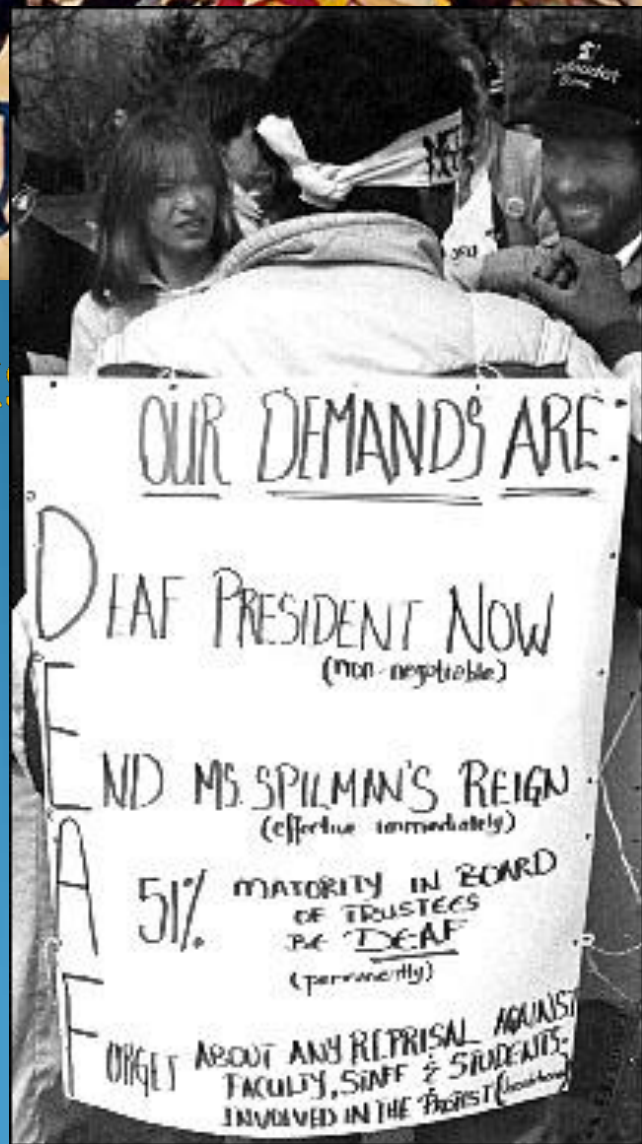 OUR DEMANDS ARE
DEAF PRESIDENT NOW
(non-negotiable)
END MS. SPILMAN'S REIGN
(effective immediately)
A 51% MAJORITY IN BOARD
OF TRUSTEES
BE DEAF
(permanently)
FORGET ABOUT ANY REPRISAL AGAINST
FACULTY, STAFF & STUDENTS
INVOLVED IN THE PROTEST